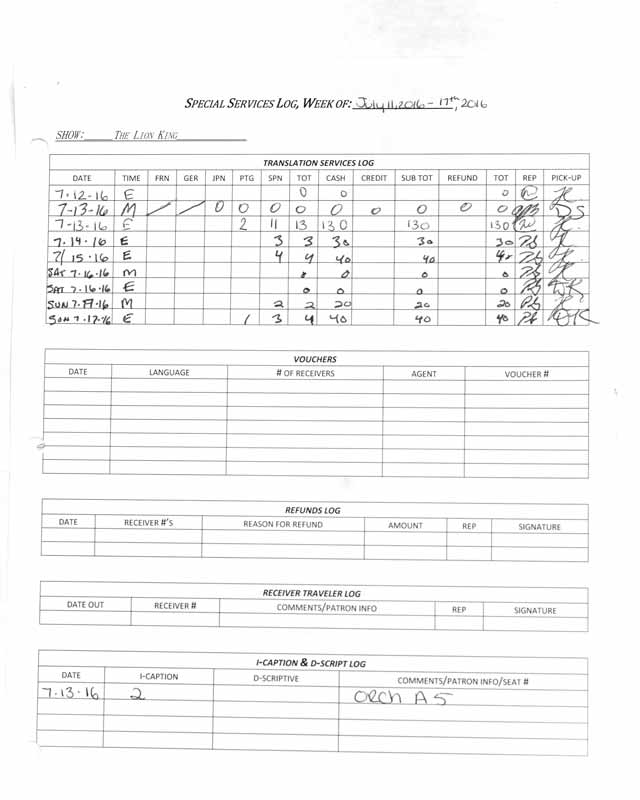 SPECIAL SERVICES LOG, WEEK OF: July 11, 2016 - 17th, 2016
SHOW: THE LION KING
TRANSLATION SERVICES LOG
DATE TIME FRN GER JPN PTG SPN TOT CASH CREDIT SUB TOT REFUND TOT REP PICK-UP
7-12-16 E 0 0 0
7-13-16 M / / 0 0 0 0 0 0 0 0 0 DS
7-13-16 E 2 11 13 130 130 130
7.14.16 E 3 3 30 30 30
7/15.16 E 4 4 40 40 40
SAT 7.16.16 M 0 0 0 0
SAT 7.16.16 E 0 0 0 0 DK
SUN 7.17.16 M 2 2 20 20 20
SUN 7.17.16 E 1 3 4 40 40 40 DK
VOUCHERS
DATE LANGUAGE # OF RECEIVERS AGENT VOUCHER #
REFUNDS LOG
DATE RECEIVER #'S REASON FOR REFUND AMOUNT REP SIGNATURE
RECEIVER TRAVELER LOG
DATE OUT RECEIVER # COMMENTS/PATRON INFO REP SIGNATURE
I-CAPTION & D-SCRIPT LOG
DATE I-CAPTION D-SCRIPTIVE COMMENTS/PATRON INFO/SEAT #
7-13-16 2 ORCH A5